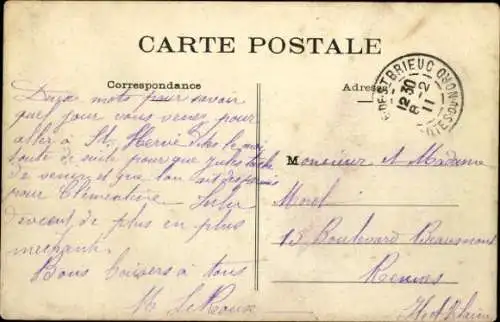 CARTE POSTALE
Correspondance
Deux mots pour savoir
quel jour vous venez pour
aller à St Hervé dites le moi
toute de suite pour que Jules tâche
de venir et que l'on ait des
pour Clémentine Lulu
devient de plus en plus
méchante
Bons baisers à tous
M Le Roux
Adres
ST BRIEUC
12 30
8 - 2
11
Monsieur et Madame
Morel
13 Boulevard Beaumont
Rennes
Ile et Vilaine